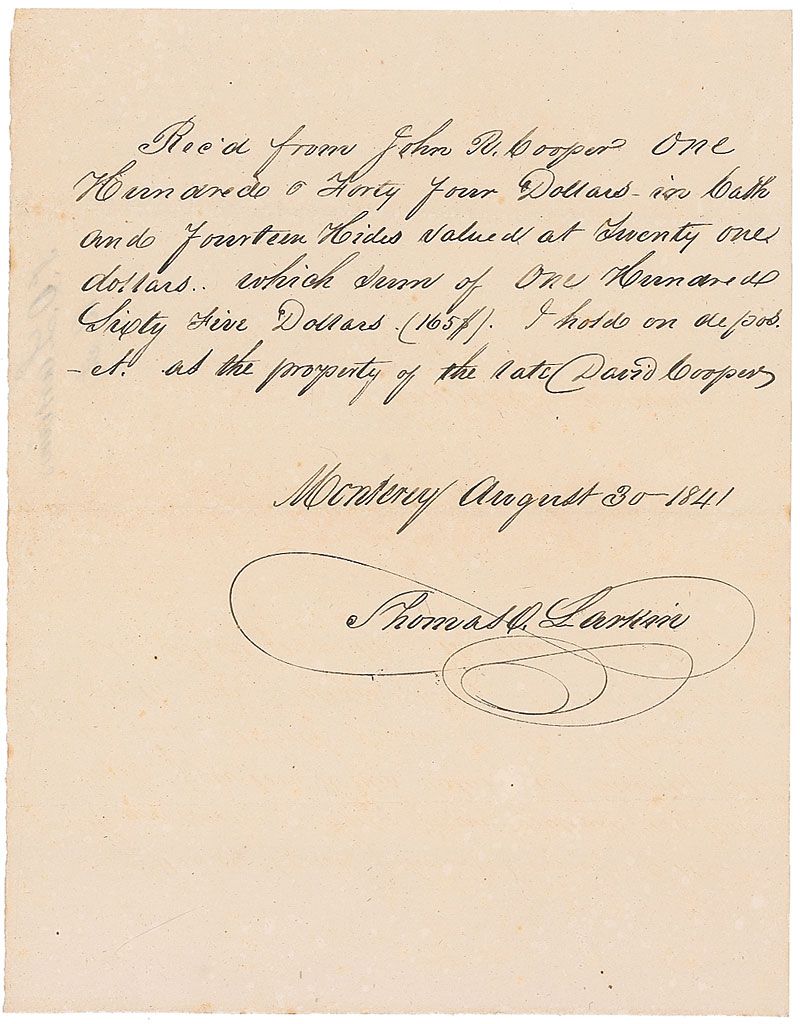 Rec'd from John R. Cooper One
Hundred & Forty four Dollars - in Cash
and fourteen Hides valued at Twenty one
dollars.. which sum of One Hundred
Sixty Five Dollars (165$). I hold on depos.
- et. as the property of the late David Cooper
Monterey August 30 - 1841
Thomas O. Larkin